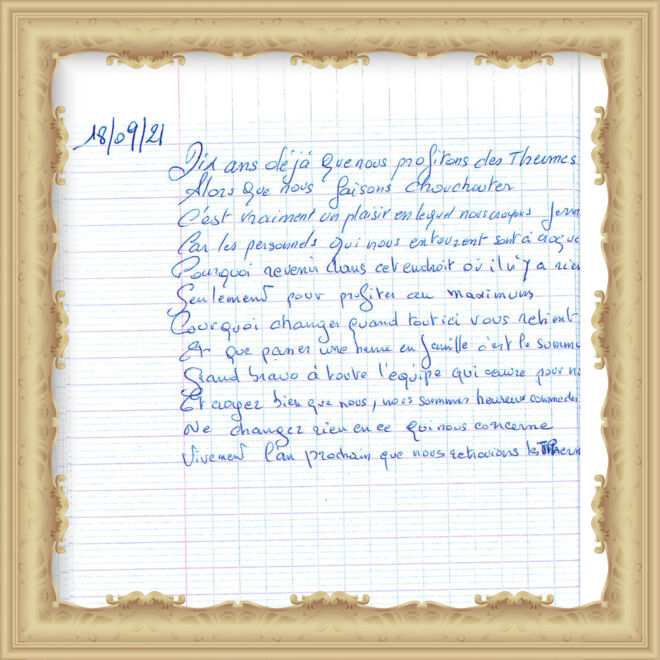 18/09/21
Dix ans déjà que nous profitons des Thermes
Alors que nous faisons chouchouter
C'est vraiment un plaisir en lequel nous croyons ferm
Car les personnels qui nous entourent sont à croque
Pourquoi revenir dans cet endroit où il n'y a rien
Seulement pour profiter au maximum
Pourquoi changer quand tout ici vous retient
Et que passer une heure en famille c'est le summ
Grand bravo à toute l'équipe qui œuvre pour no
Et croyez bien que nous, nous sommes heureux comme des
Ne changez rien en ce qui nous concerne
Vivement l'an prochain que nous retrouvions les Therm